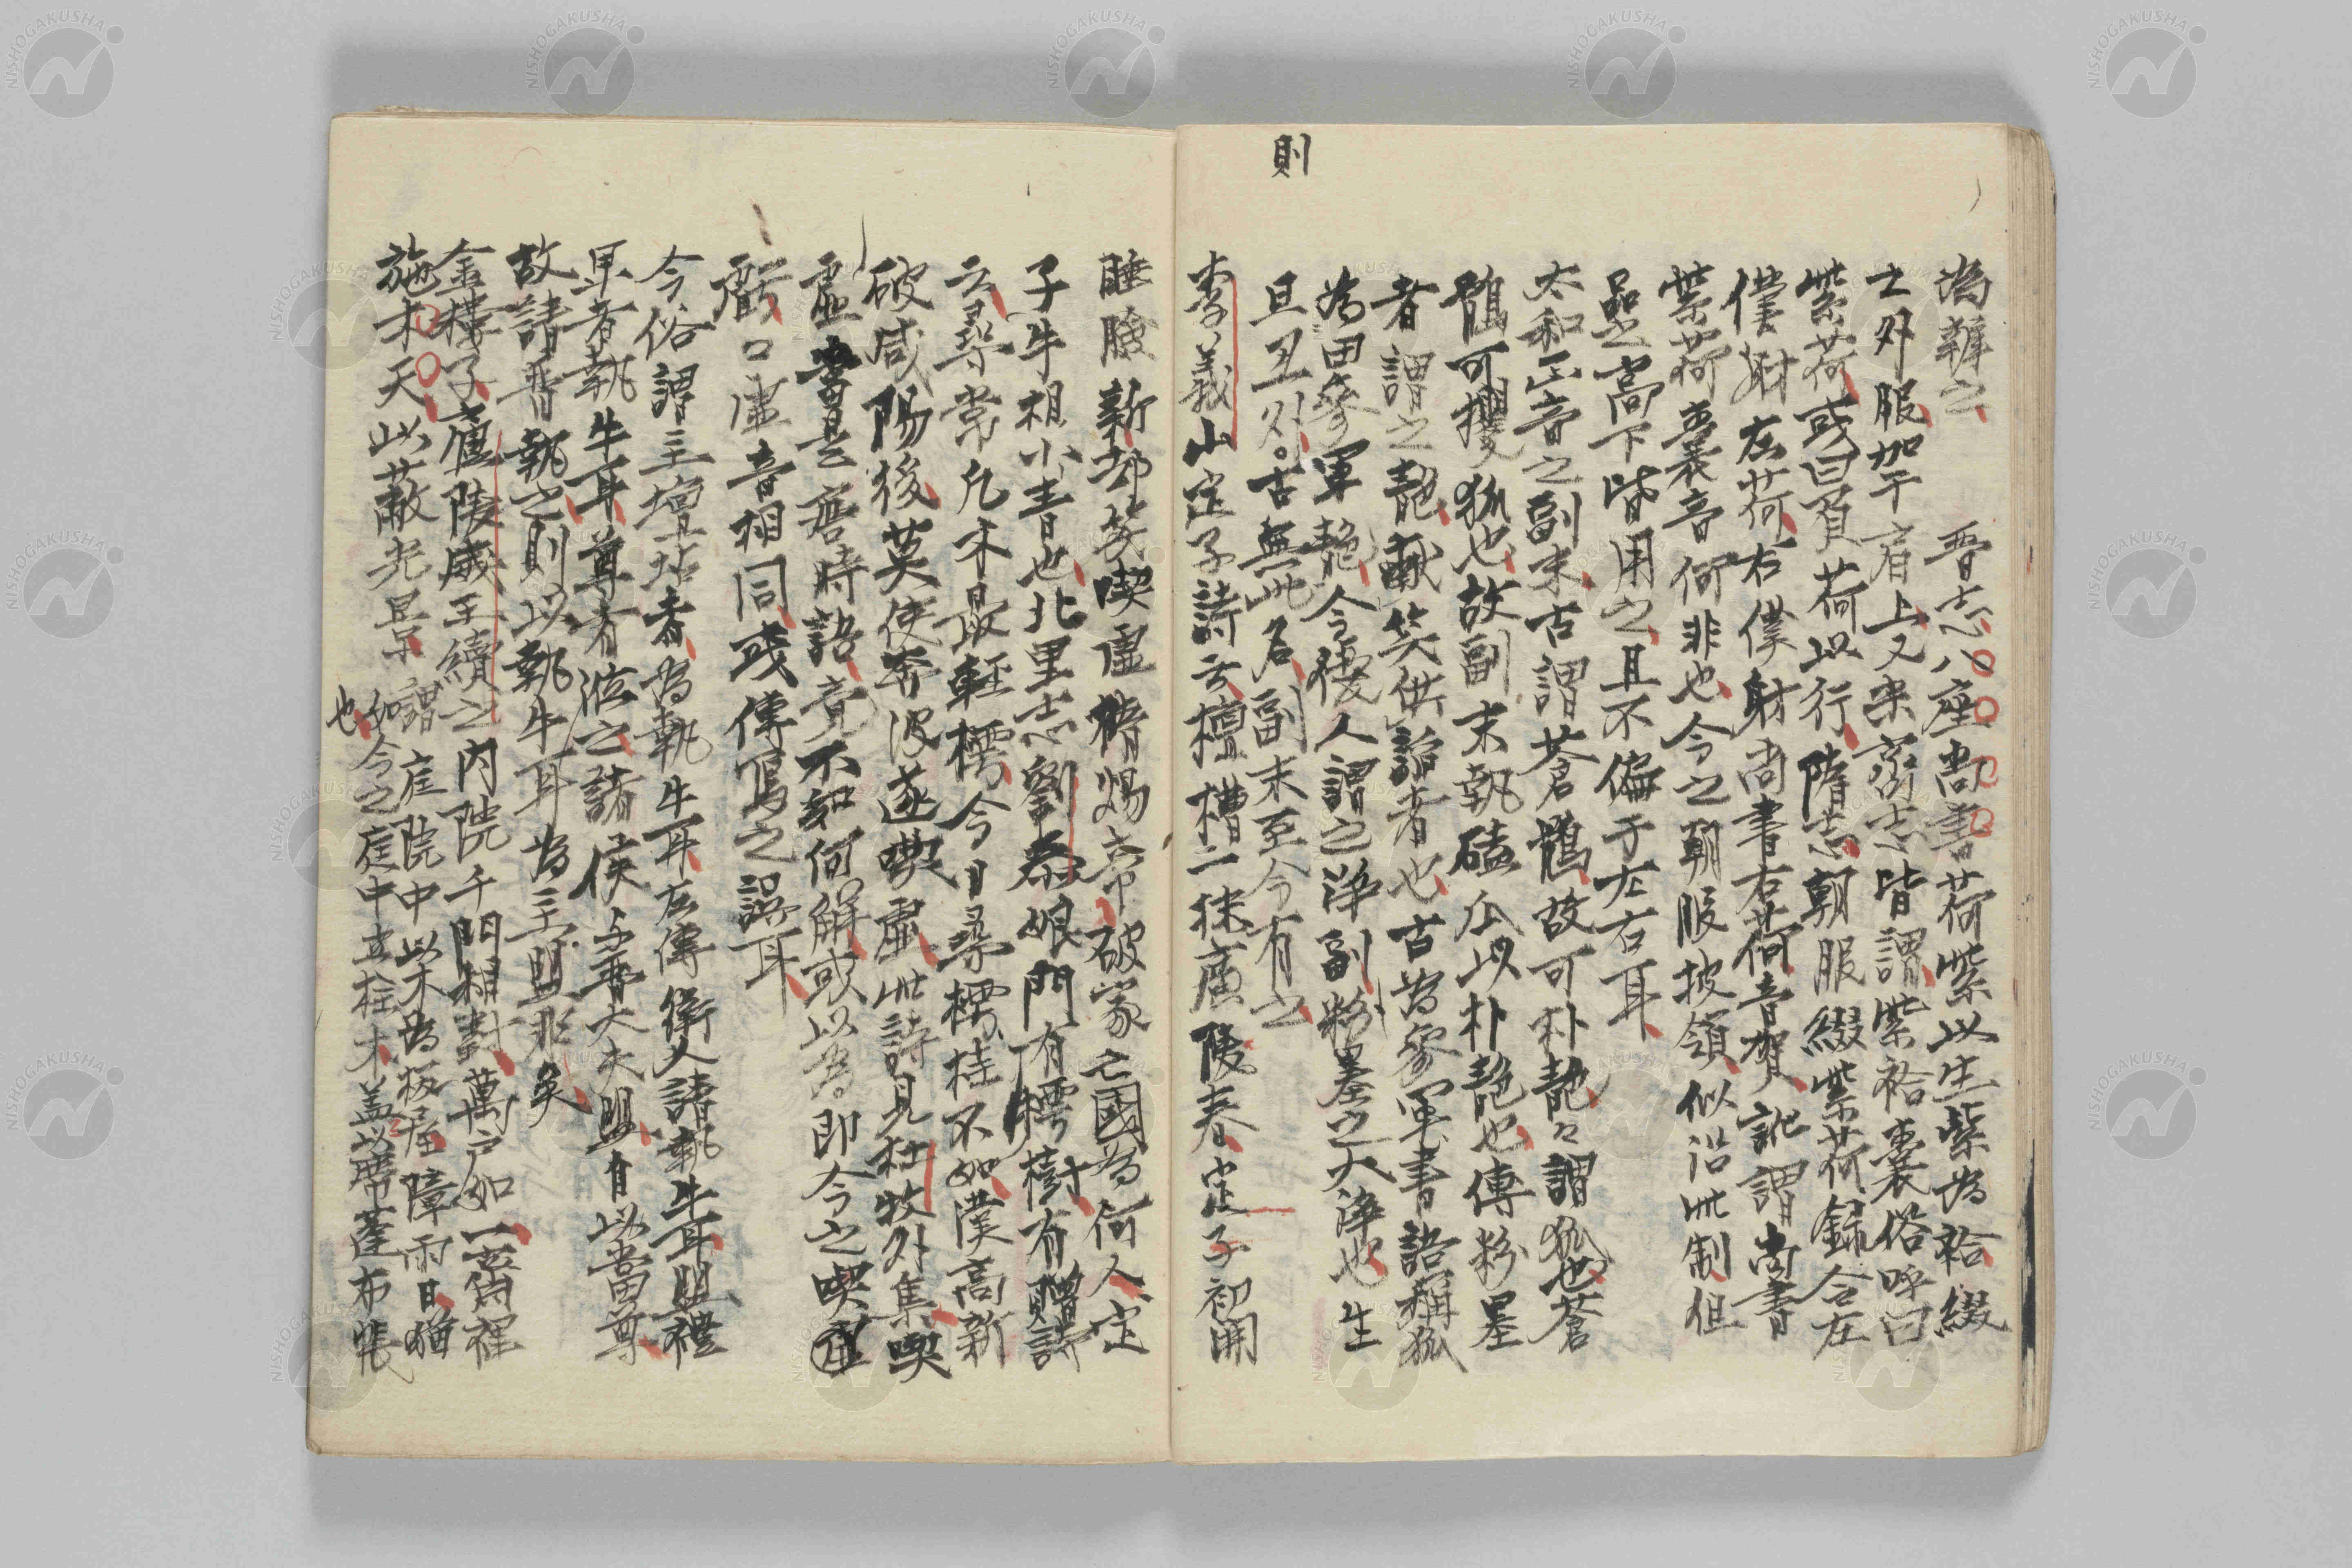 則
為辯之　晋志八座尚書荷紫以生紫為袷綴
之外服加于肩上又宋齊志皆謂紫袷囊俗呼曰
紫荷或曰負荷以行隋志朝服綴紫荷録令在
僕射左荷右僕射尚書右荷音賀訛謂尚書
紫荷囊音何非也今之朝服披領似沿此制但
品之高下皆用之且不偏于左右耳
太和正音之副末古謂蒼鶻故可朴靘々謂狐也蒼
鶻可攫狐也故副末執磕瓜以朴靘也傳粉墨
者謂之靘献笑供諂者也古為參軍書語稱狐
為田參軍靘今優人謂之淨副粉墨之大淨也生
旦丑外古無此名副末至今有之
李義山定子詩云檀槽一抹廣陵春定子初開
睡臉新却笑喫虚楊帝破家亡國為何人定
子牛相小青也北里志劉泰娘門有樗樹有贈詩
云尋常凡木最輕樗今日尋樗桂不如漢高新
破咸陽後莫使奔波遂喫虚此詩見杜牧外集喫
虚當是唐時語竟不知何解或以為即今之喫虚
虧口虚音相同或傳寫之誤耳
今俗謂主壇坫者為執牛耳左傳衛人請執牛耳盟禮
卑者執牛耳尊者涖之諸侯与晋大夫盟自以當尊
故請晋執之則以執牛耳為主盟非矣
金樓子廬陵威王續之内院千門相對萬户如一齋侍裡
施木天以蔽光景謂庭院中以木為板屋障雨日猶
如今之庭中立柱木盖以席蓬布帳
也